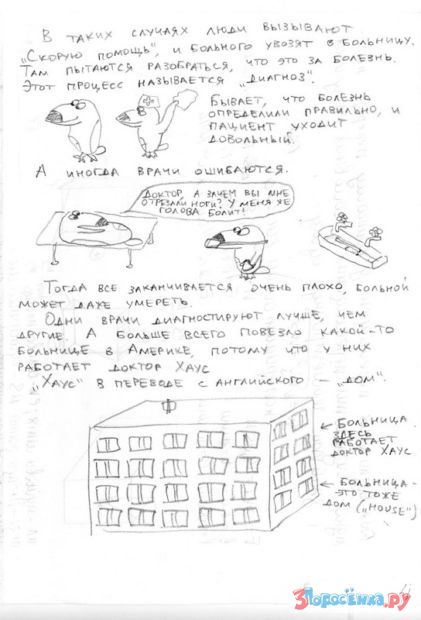 В таких случаях люди вызывают
„Скорую помощь", и больного увозят в больницу.
Там пытаются разобраться, что это за болезнь.
Этот процесс называется „диагноз".
Бывает, что болезнь
определили правильно, и
пациент уходит
довольный.
А иногда врачи ошибаются.
Доктор, а зачем вы мне
отрезали ноги? У меня же
голова болит!
Тогда все заканчивается очень плохо, больной
может даже умереть.
Одни врачи диагностируют лучше, чем
другие. А больше всего повезло какой-то
больнице в Америке, потому что у них
работает доктор Хаус
„Хаус" в переводе с английского – „дом".
← Больница.
Здесь
работает
доктор Хаус
← Больница-
это тоже
дом („HOUSE")
3Поросёнка.ру